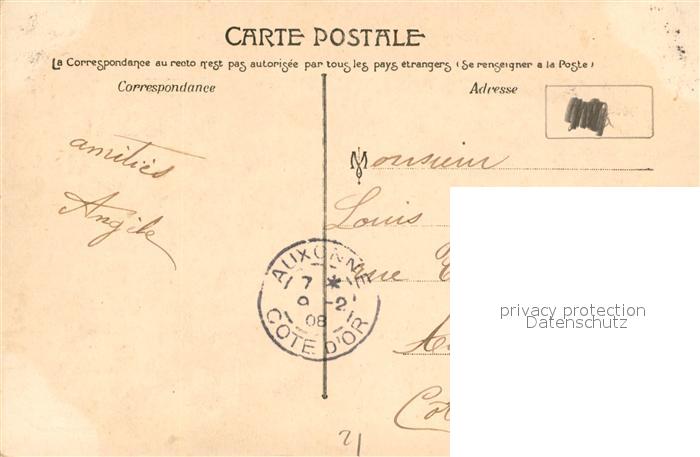 CARTE POSTALE
La Correspondance au recto n'est pas autorisée par tous les pays étrangers (Se renseigner a la Poste)
Correspondance
Adresse
amitiés
Angèle
Monsieur
Louis
AUXONNE
7 *
9 -2
08
COTE D'OR
privacy protection
Datenschutz
21